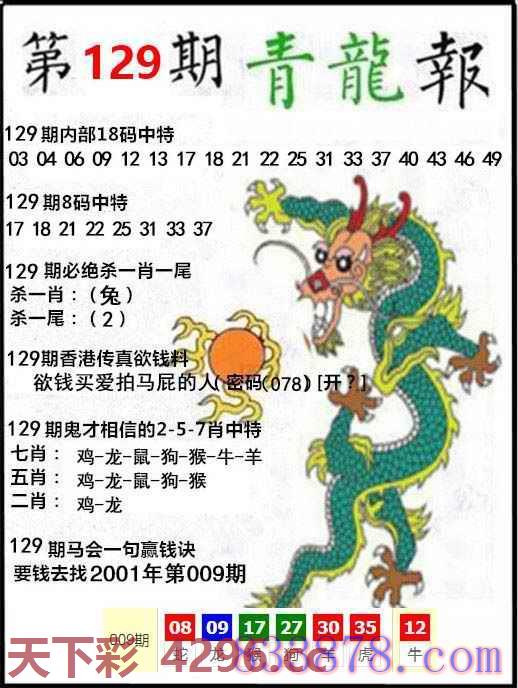 第129期青龍報
129期内部18码中特
03 04 06 09 12 13 17 18 21 22 25 31 33 37 40 43 46 49
129期8码中特
17 18 21 22 25 31 33 37
129期必绝杀一肖一尾
杀一肖：（兔）
杀一尾：（2）
129期香港传真欲钱料
欲钱买爱拍马屁的人（密码(078）[开？]
129期鬼才相信的2-5-7肖中特
七肖： 鸡-龙-鼠-狗-猴-牛-羊
五肖： 鸡-龙-鼠-狗-猴
二肖： 鸡-龙
129期马会一句赢钱诀
要钱去找2001年第009期
009期 08 09 17 27 30 35 12
蛇 龙 猴 狗 羊 虎 牛
天下彩